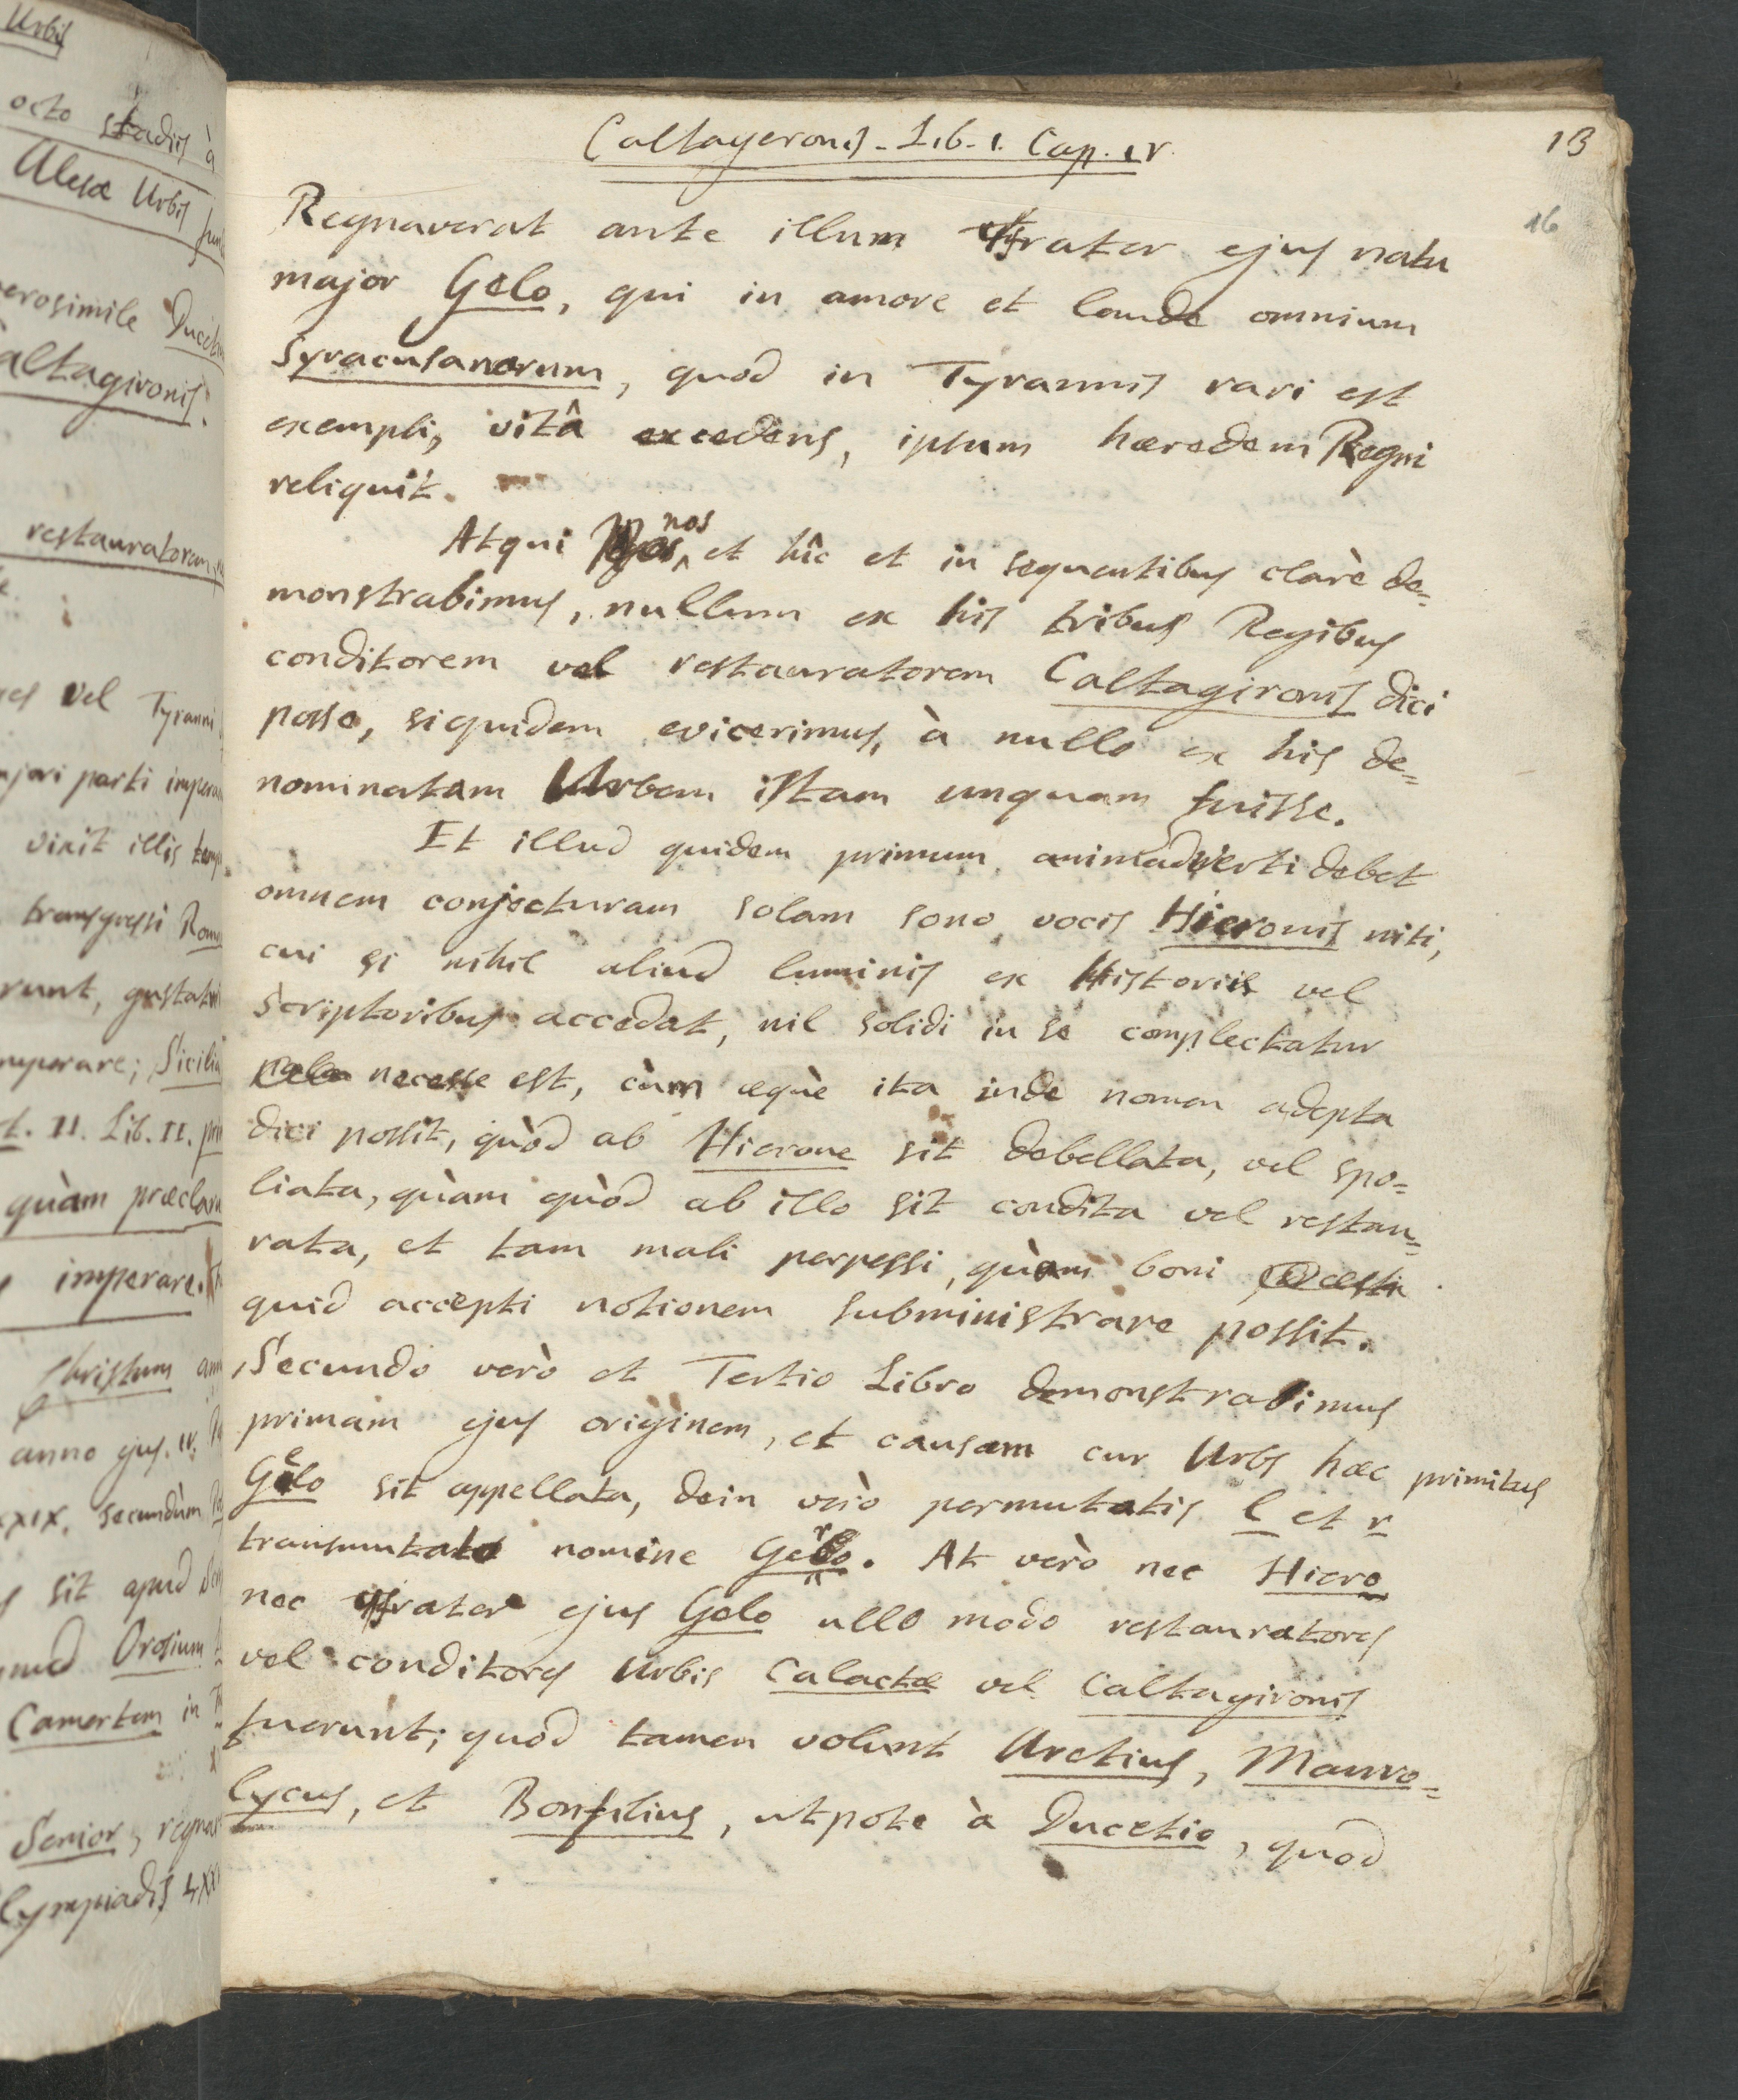 Urbis
octo stadiis à
Alesæ Urbis
verosimile
Caltagironis.
restauratorem
vel Tyranni
parti
vixit illis
transgressi
gustatu
imperare;
II. Lib. II.
quàm
imperare.
Christum
anno ejus. IV.
secundùm
sit apud
Orosium
Camertem in
Senior,
Olympiadis
Caltageronis. Lib. I. Cap. IV.
13
16
Regnaverat ante illum frater ejus natu
major Gelo, qui in amore et laude omnium
Syracusanorum, quod in Tyrannis rari est
exempli, vitâ excedens, ipsum hæredem Regni
reliquit.
Atqui nos et hîc et in sequentibus clarè de=
monstrabimus, nullum ex his tribus Regibus
conditorem vel restauratorem Caltagironis dici
posse, siquidem evicerimus, à nullo ex his de=
nominatam Urbem istam unquam fuisse.
Et illud quidem primum animadverti debet
omnem conjecturam solam sono vocis Hieronis niti,
cui si nihil aliud luminis ex Historiis vel
Scriptoribus accedat, nil solidi in se complectatur
necesse est, cùm æquè ita inde nomen adepta
dici possit, quòd ab Hierone sit debellata, vel spo=
liata, quàm quòd ab illo sit condita vel restau=
rata, et tam mali perpessi, quàm boni
quid accepti notionem subministrare possit.
Secundo verò et Tertio Libro demonstrabimus
primam ejus originem, et causam cur Urbs hæc primitus
Gelo sit appellata, dein verò permutatis l et r
transmutato nomine Gero. At verò nec Hiero
nec frater ejus Gelo ullo modo restauratores
vel conditores Urbis Calactæ vel Caltagironis
fuerunt; quod tamen volunt Aretius, Mauro=
lycus, et Bonfilius, utpote à Ducetio, quod